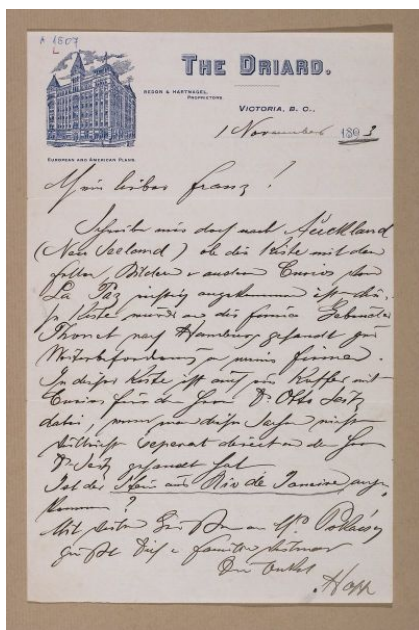 A 1807
L
THE DRIARD.
REDON & HARTNAGEL,
PROPRIETORS
VICTORIA, B. C.,
1 November 1893
EUROPEAN AND AMERICAN PLANS.
Mein lieber Franz!
Schreibe mir doch nach Auckland
(Neu Seeland) ob die Kiste mit den
Bildern u andern Curios von
La Paz richtig angekommen ist
Kiste wurde an die Firma Gebrüder
Thonet nach Hamburg gesandt zur
Weiterbeförderung an meine Firma.
In dieser Kiste ist auch ein Koffer mit
Curios für den Herrn Dr. Otto Seitz
dabei, wenn man diese Sachen nicht
vielleicht separat direct an den Herrn
Dr. Seitz gesandt hat
Ist der Stein aus Rio de Janeiro ange
kommen?
Mit Grüßen an
grüßt Dich u Familie
Dein Onkel
Hopp